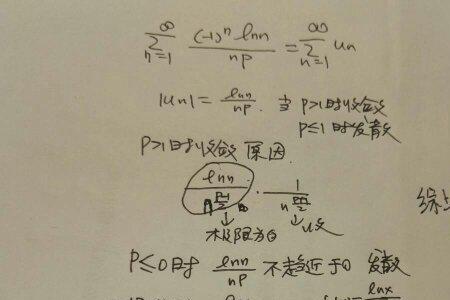 ∞ Σ n=1 (-1)ⁿ lnn / nᵖ = ∞ Σ n=1 un
|un| = lnn / nᵖ . 当 p>1时收敛
p≤1时发散
P>1时收敛原因.
lnn / n^((p-1)/2) · 1 / n^((p+1)/2)
↓ ↓
极限为0 收敛
综上
P≤0时 lnn / nᵖ 不趋近于0 发散
lnx